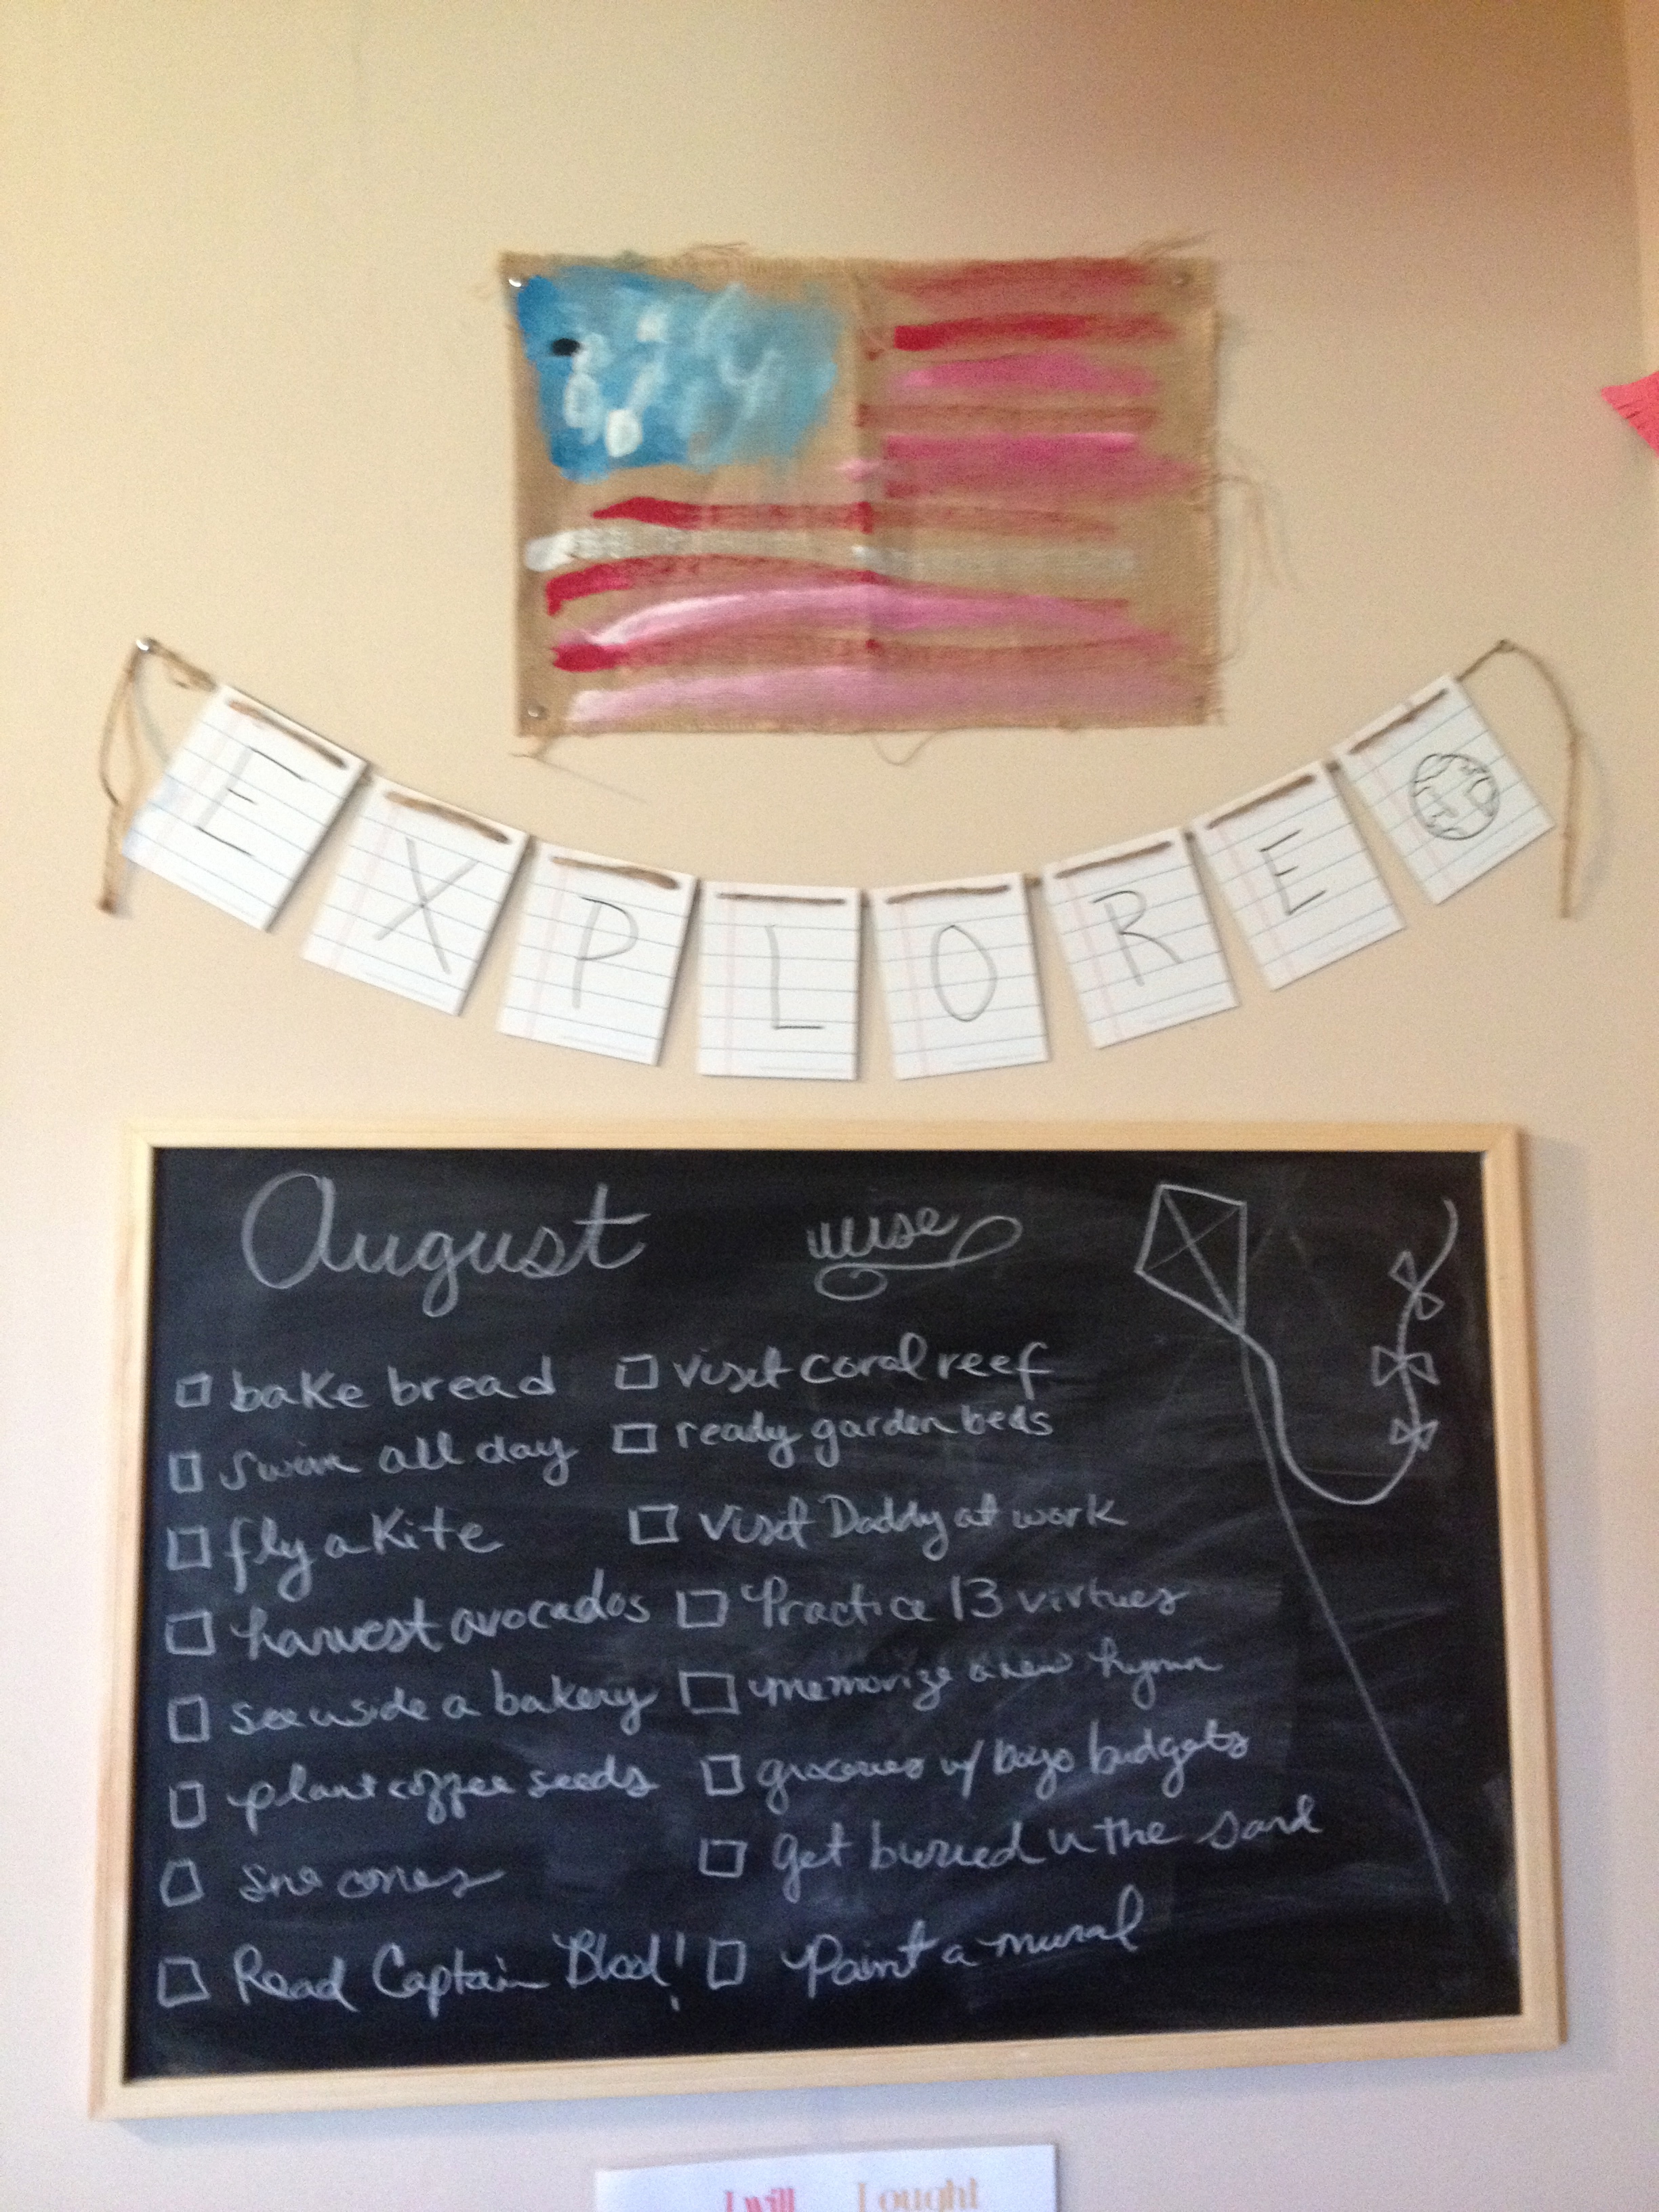 EXPLORE
August
□ bake bread
□ swim all day
□ fly a kite
□ harvest avocados
□ see inside a bakery
□ plant coffee seeds
□ sno cones
□ Read Captain Blood!
□ visit coral reef
□ ready garden beds
□ visit Daddy at work
□ Practice 13 virtues
□ memorize a new hymn
□ groceries w/ boys budgets
□ get buried in the sand
□ Paint a mural
I will I ought